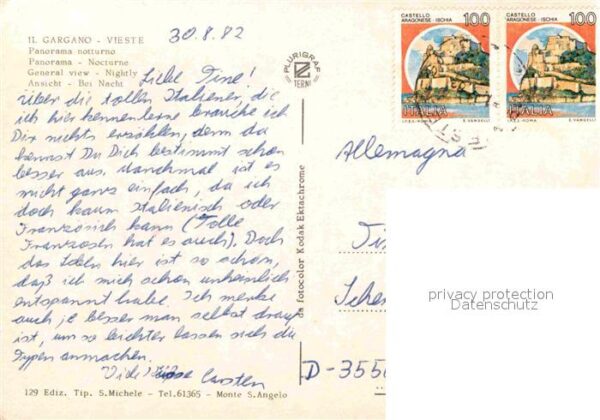 30.8.82
IL GARGANO - VIESTE
Panorama notturno
Panorama - Nocturne
General view - Nightly
Ansicht - Bei Nacht
Liebe Tine!
Über die tollen Italiener, die
ich hier kennenlerne brauche ich
Dir nichts erzählen, denn da
kennst Du Dich bestimmt schon
besser aus. Manchmal ist es
nicht ganz einfach, da ich
doch kaum Italienisch oder
Französisch kann (Tolle
Franzosen hat es auch). Doch
das Leben hier ist so schön,
daß ich mich schon unheimlich
entspannt habe. Ich merke
auch je besser man selbst drauf
ist, um so leichter lassen sich die
Typen anmachen.
Viele Carsten
129 Ediz. Tip. S.Michele - Tel.61365 - Monte S.Angelo
PLURIGRAF
TERNI
da fotocolor Kodak Ektachrome
CASTELLO
ARAGONESE - ISCHIA
100
ITALIA
I.P.Z.S.-ROMA E. VANGELLI
CASTELLO
ARAGONESE - ISCHIA
100
ITALIA
I.P.Z.S.-ROMA E. VANGELLI
Allemagna
D-355
privacy protection
Datenschutz